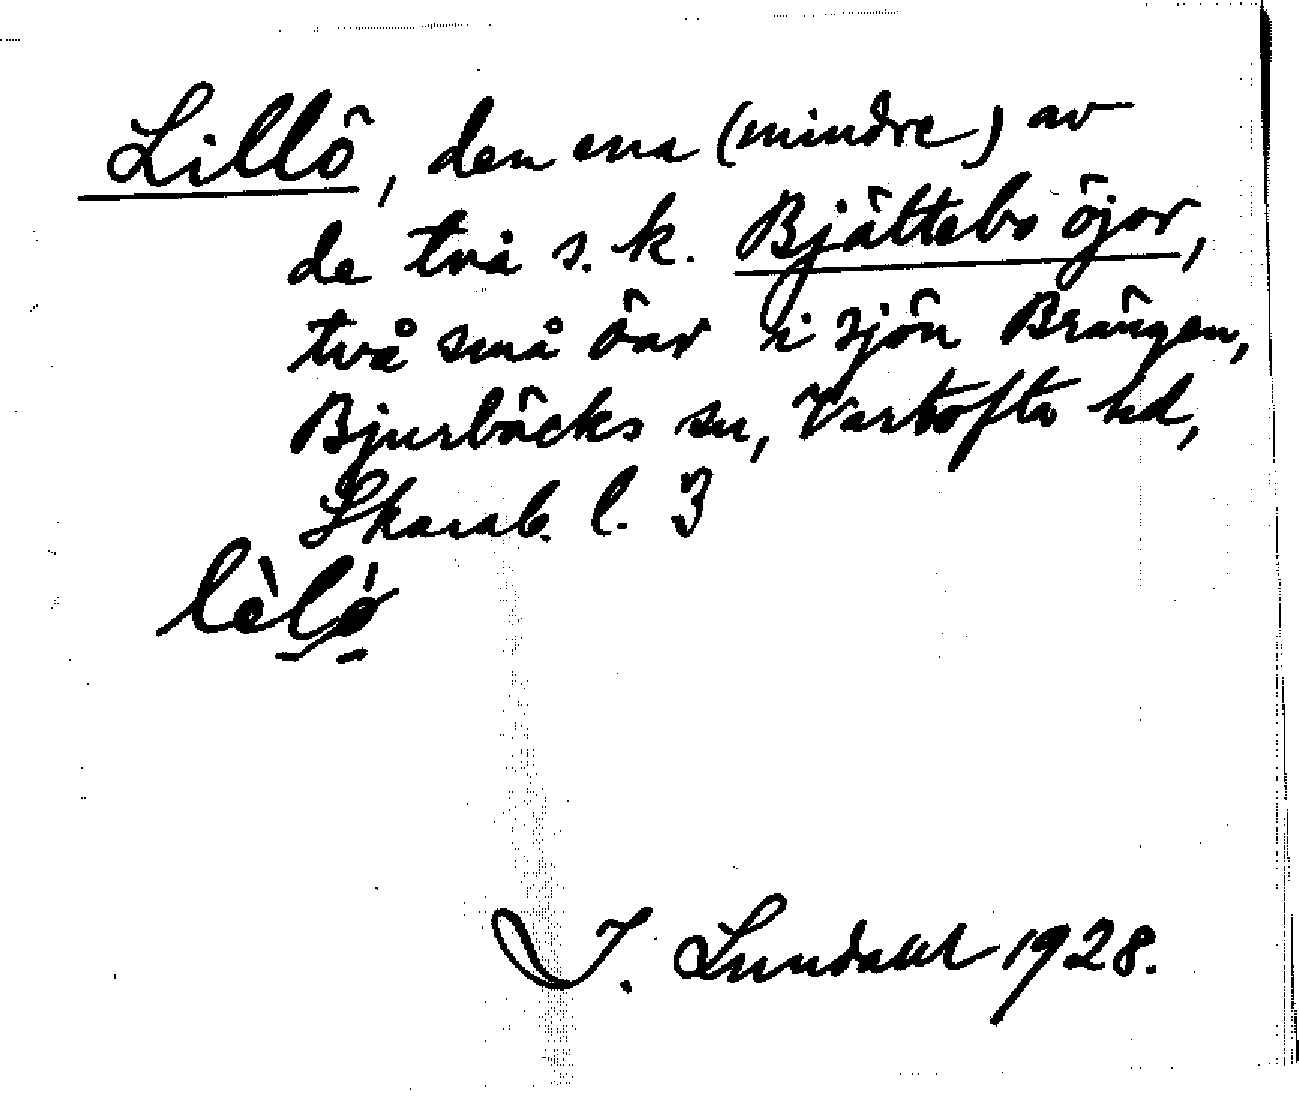 Lillö, den ena (mindre) av
de två s. k. Bjättebo öjor,
två små öar i sjön Brängen,
Bjurbäcks sn, Vartofta hd,
Skarab. l. 3
I. Lundahl 1928.